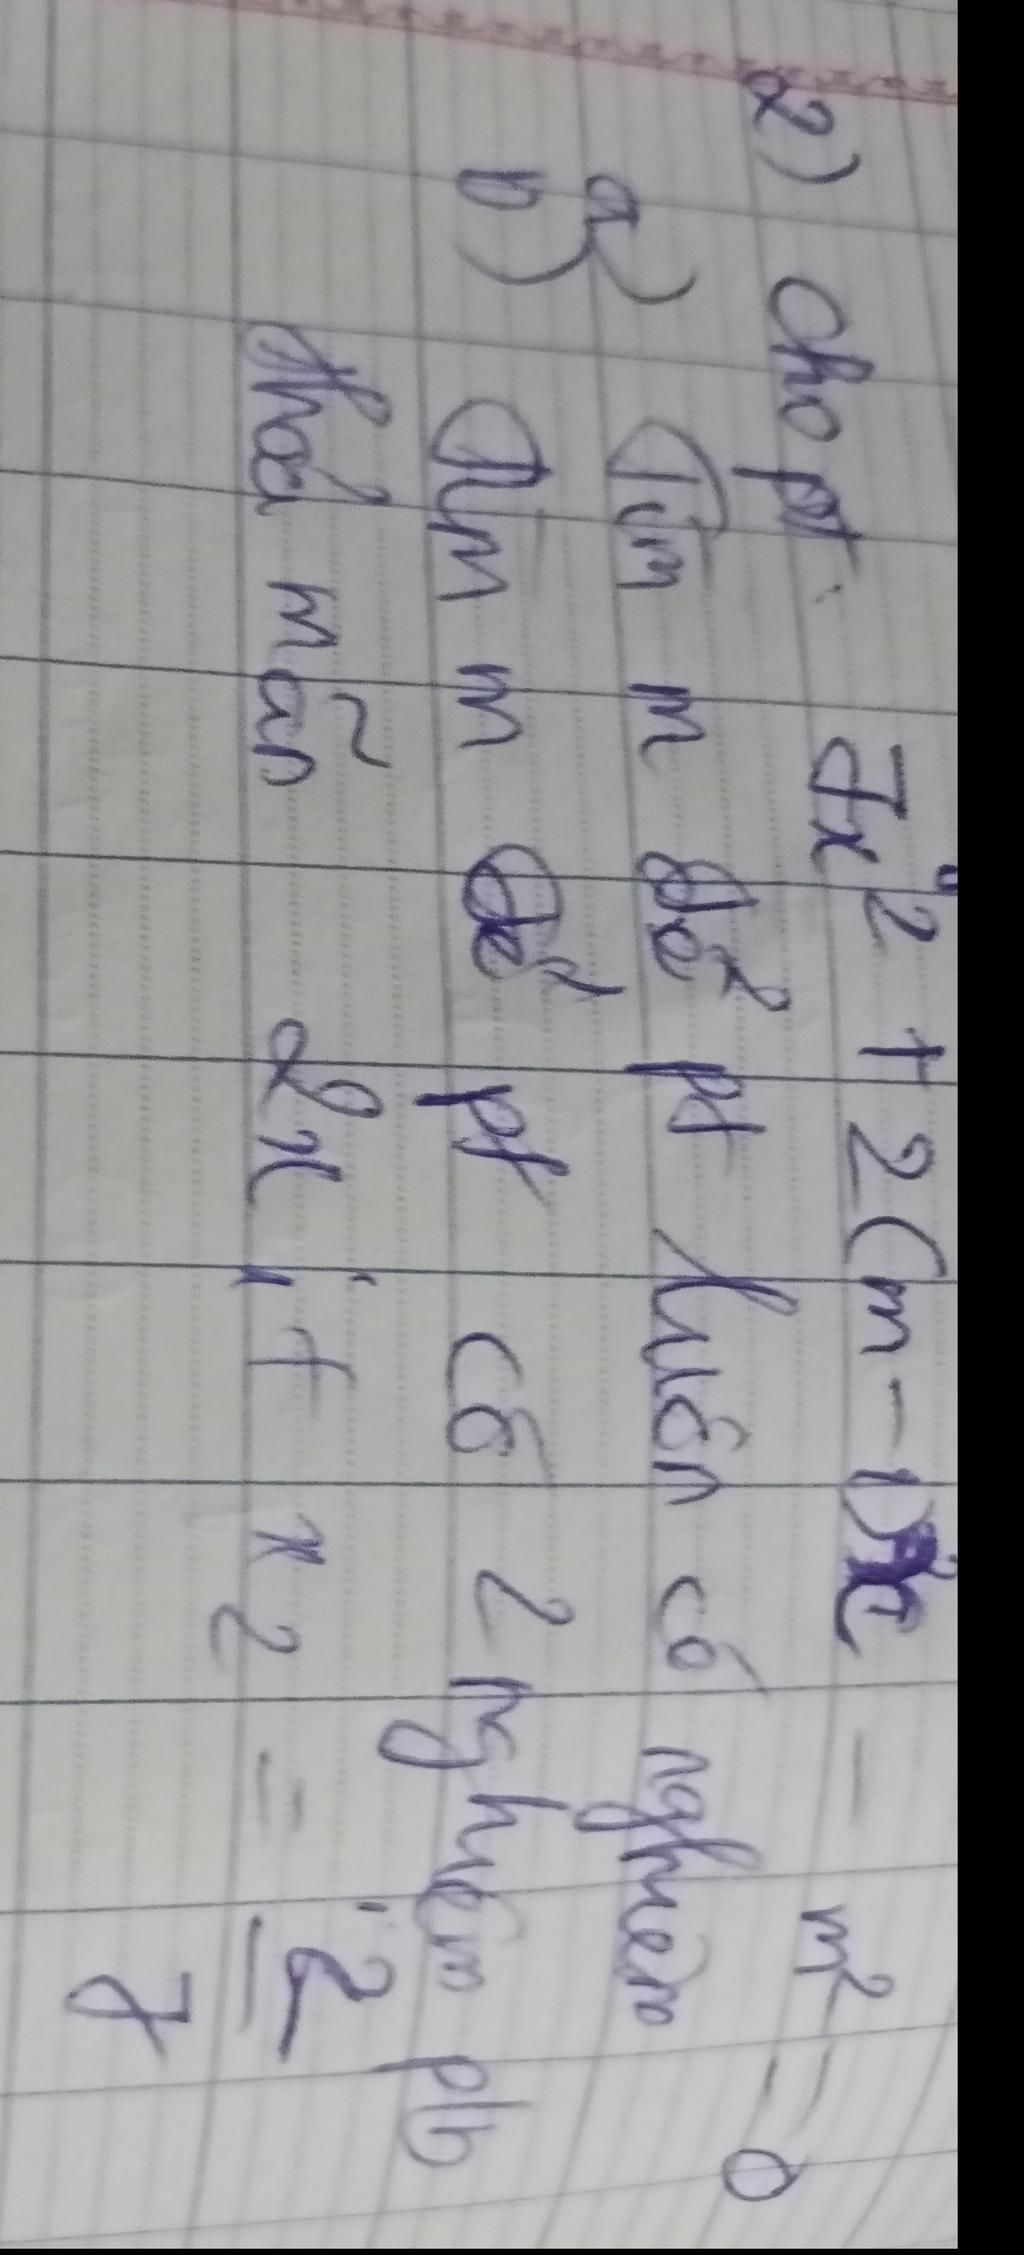 2) Cho pt: 7x² + 2(m-1)x - m² = 0
a) Tìm m để pt luôn có nghiệm
b) Tìm m để pt có 2 nghiệm pb
thoả mãn 2x₁ + x₂ = 2/7